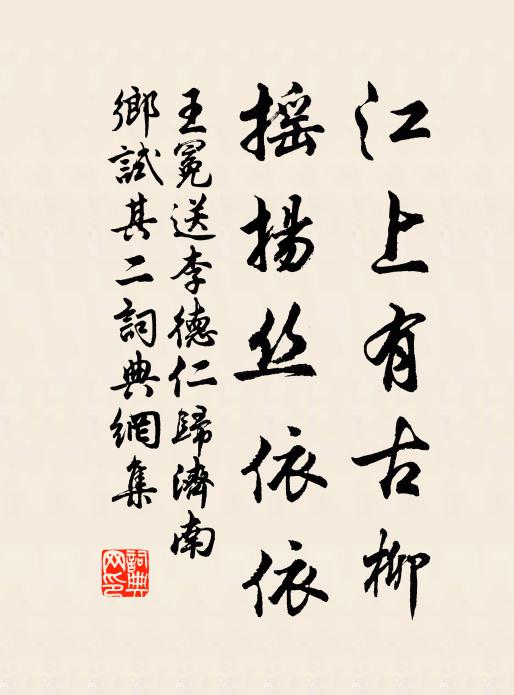 江上有古柳
摇揚丝依依
王冕送李德仁歸濟南
鄉試其二詞典網集
詞典网印